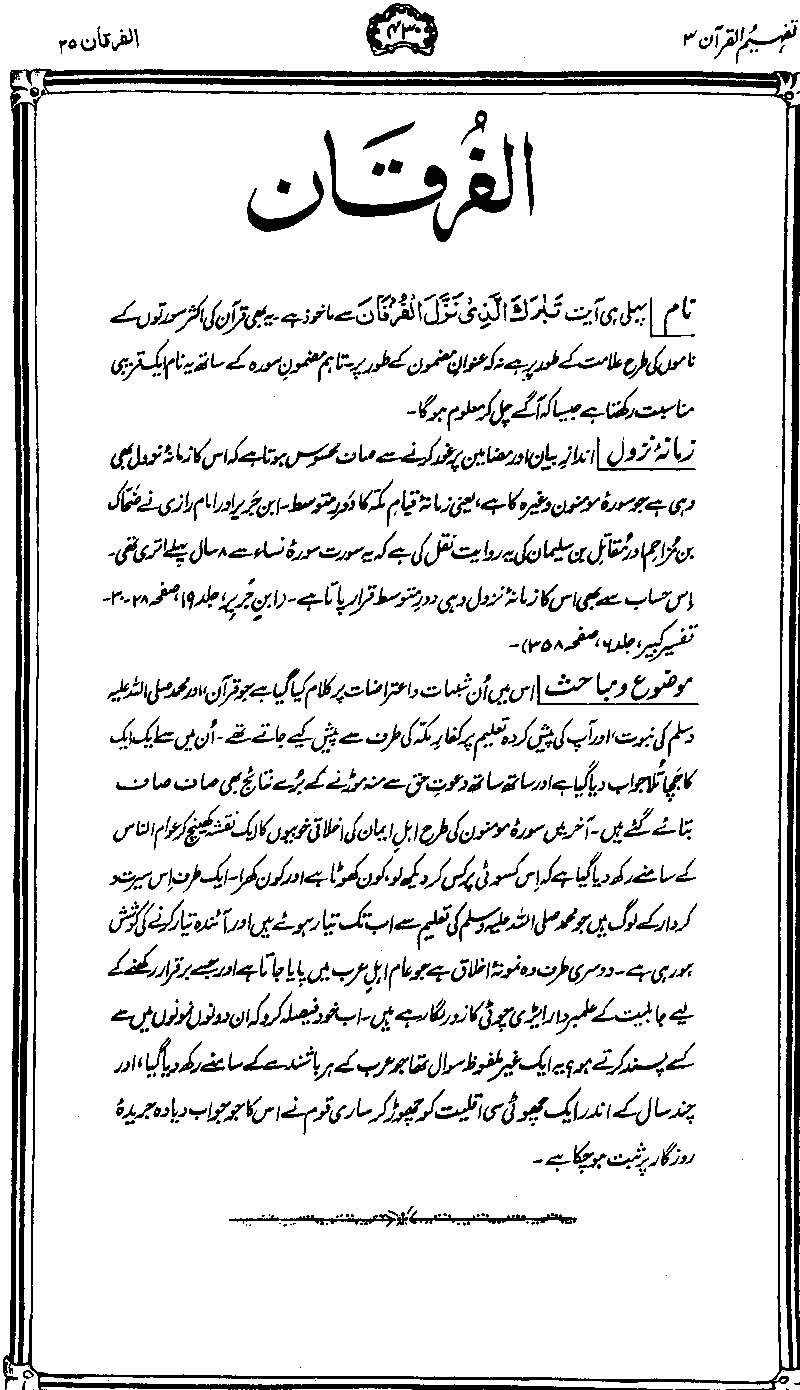 تفہیم القرآن ۳
۴۳۰
الفرقان ۲۵
الفُرقان
نام | پہلی ہی آیت تَبٰرَكَ الَّذِیْ نَزَّلَ الْفُرْقَانَ سے ماخوذ ہے۔ یہ بھی قرآن کی اکثر سورتوں کے
ناموں کی طرح علامت کے طور پر ہے نہ کہ عنوانِ مضمون کے طور پر۔ تاہم مضمونِ سورہ کے ساتھ یہ نام ایک قریبی
مناسبت رکھتا ہے جیسا کہ آگے چل کر معلوم ہوگا۔
زمانۂ نزول | اندازِ بیان اور مضامین پر غور کرنے سے صاف محسوس ہوتا ہے کہ اس کا زمانۂ نزول بھی
وہی ہے جو سورۂ مومنون وغیرہ کا ہے، یعنی زمانۂ قیامِ مکہ کا دَورِ متوسط۔ ابن جَریر اور امام رازی نے ضحّاک
بن مُزاحِم اور مُقاتل بن سلیمان کی یہ روایت نقل کی ہے کہ یہ سورت سورۂ نساء سے ۸ سال پہلے اتری تھی۔
اِس حساب سے بھی اس کا زمانۂ نزول وہی دورِ متوسط قرار پاتا ہے۔ (ابنِ جُریر، جلد ۱۹، صفحہ ۲۸-۳۰۔
تفسیر کبیر، جلد ۶، صفحہ ۳۵۸)۔
موضوع و مباحث | اس میں اُن شبہات و اعتراضات پر کلام کیا گیا ہے جو قرآن، اور محمد صلی اللہ علیہ
وسلم کی نبوت، اور آپ کی پیش کردہ تعلیم پر کفارِ مکہ کی طرف سے پیش کیے جاتے تھے۔ اُن میں سے ایک ایک
کا جچا تُلا جواب دیا گیا ہے اور ساتھ ساتھ دعوتِ حق سے منہ موڑنے کے بُرے نتائج بھی صاف صاف
بتائے گئے ہیں۔ آخر میں سورۂ مومنون کی طرح اہلِ ایمان کی اخلاقی خوبیوں کا ایک نقشہ کھینچ کر عوام الناس
کے سامنے رکھ دیا گیا ہے کہ اِس کسوٹی پر کس کر دیکھ لو، کون کھوٹا ہے اور کون کھرا۔ ایک طرف اِس سیرت و
کردار کے لوگ ہیں جو محمد صلی اللہ علیہ وسلم کی تعلیم سے اب تک تیار ہوئے ہیں اور آئندہ تیار کرنے کی کوشش
ہو رہی ہے۔ دوسری طرف وہ نمونۂ اخلاق ہے جو عام اہلِ عرب میں پایا جاتا ہے اور جسے برقرار رکھنے کے
لیے جاہلیت کے علمبردار ایڑی چوٹی کا زور لگا رہے ہیں۔ اب خود فیصلہ کرو کہ ان دونوں نمونوں میں سے
کسے پسند کرتے ہو؟ یہ ایک غیر ملفوظ سوال تھا جو عرب کے ہر باشندے کے سامنے رکھ دیا گیا، اور
چند سال کے اندر ایک چھوٹی سی اقلیت کو چھوڑ کر ساری قوم نے اس کا جو جواب دیا وہ جریدۂ
روزگار پر ثبت ہو چکا ہے۔